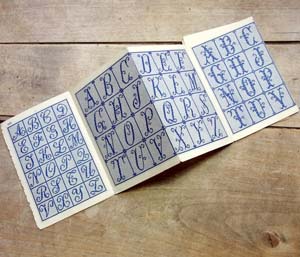 A B C D
E F G H
I K L M
N O P Q
R S T U
V X Y Z
A B C D E F
G H I K L M
N O P Q R S
T U V X Y Z
A B C
G H I
N O P
T U V